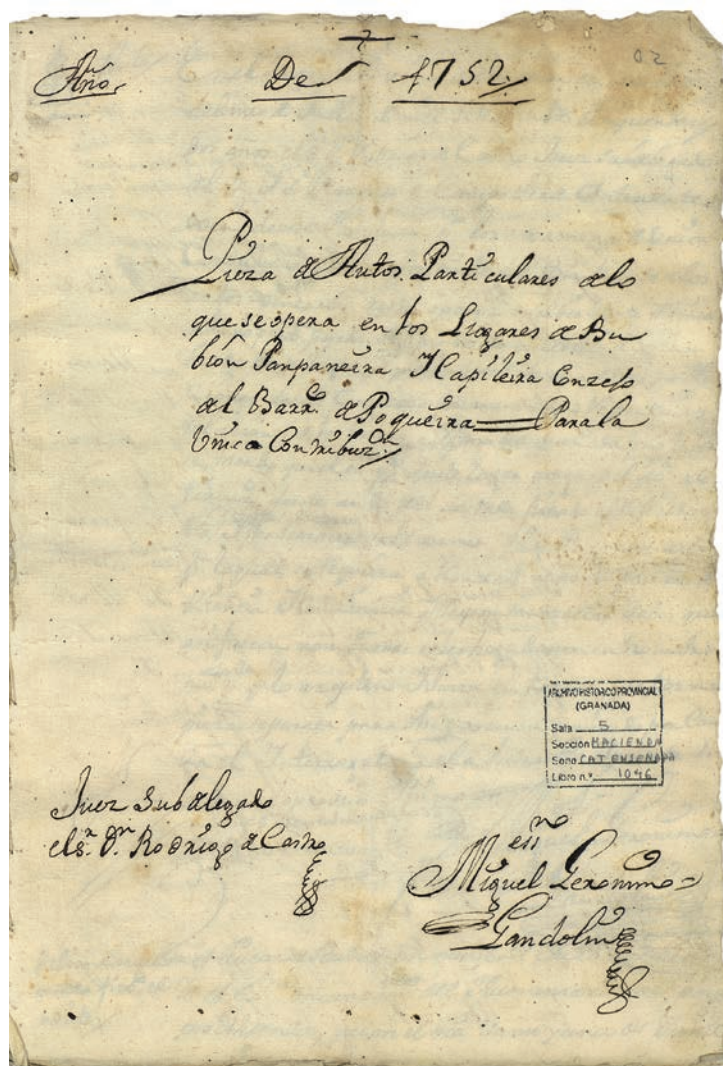 02
Año, De 1752
Pieza de Autos Particulares de lo
que se opera en los Lugares de Bu
bión Panpaneira Y Capileira Conzejo
del Barrco de Poqueira = Para la
Vnica Contribuzon
ARCHIVO HISTORICO PROVINCIAL
(GRANADA)
Sala 5
Sección HACIENDA
Serie CATENSENADA
Libro n.º 1046
Juez Subdelegado
el sr. Dn Rodrigo de Castro
essno
Miguel Geronimo
Gandolfin